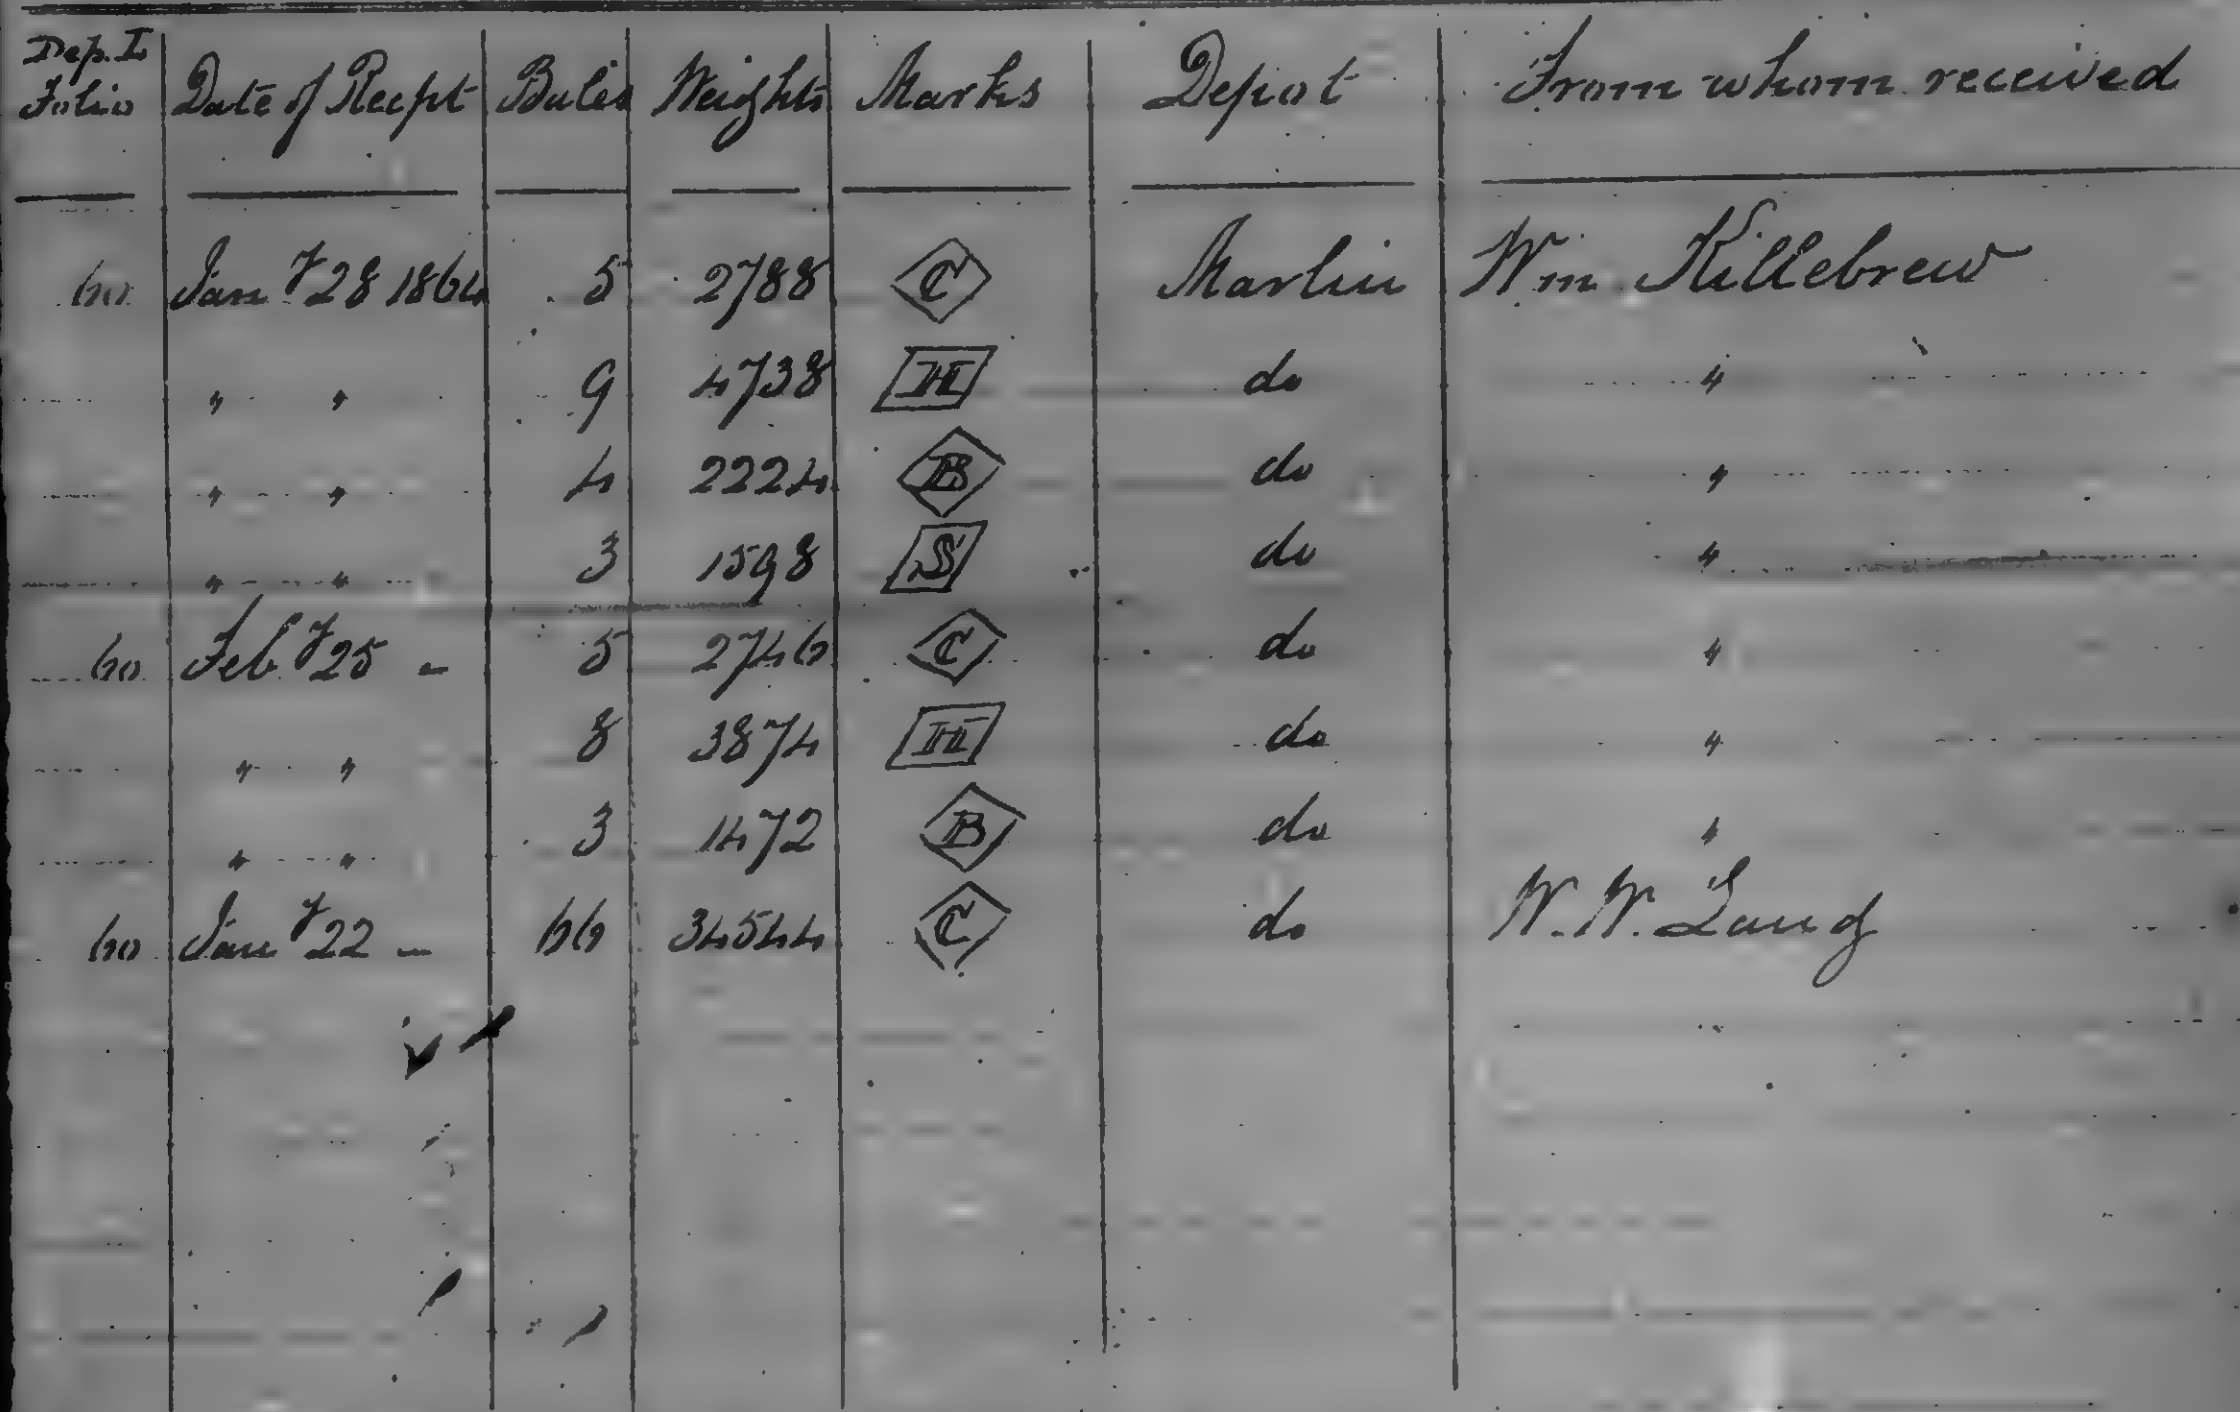 Dep. L Folio Date of Recpt Bales Weights Marks Depot From whom received
60 Jany 28 1864 5 2788 C Marlin Wm Killebrew
" " 9 4738 H do "
" " 4 2224 B do "
" " 3 1598 S do "
60 Feby 25 - 5 2746 C do "
" " 8 3874 H do "
" " 3 1472 B do "
60 Jany 22 - 66 34544 C do W. W. Lang